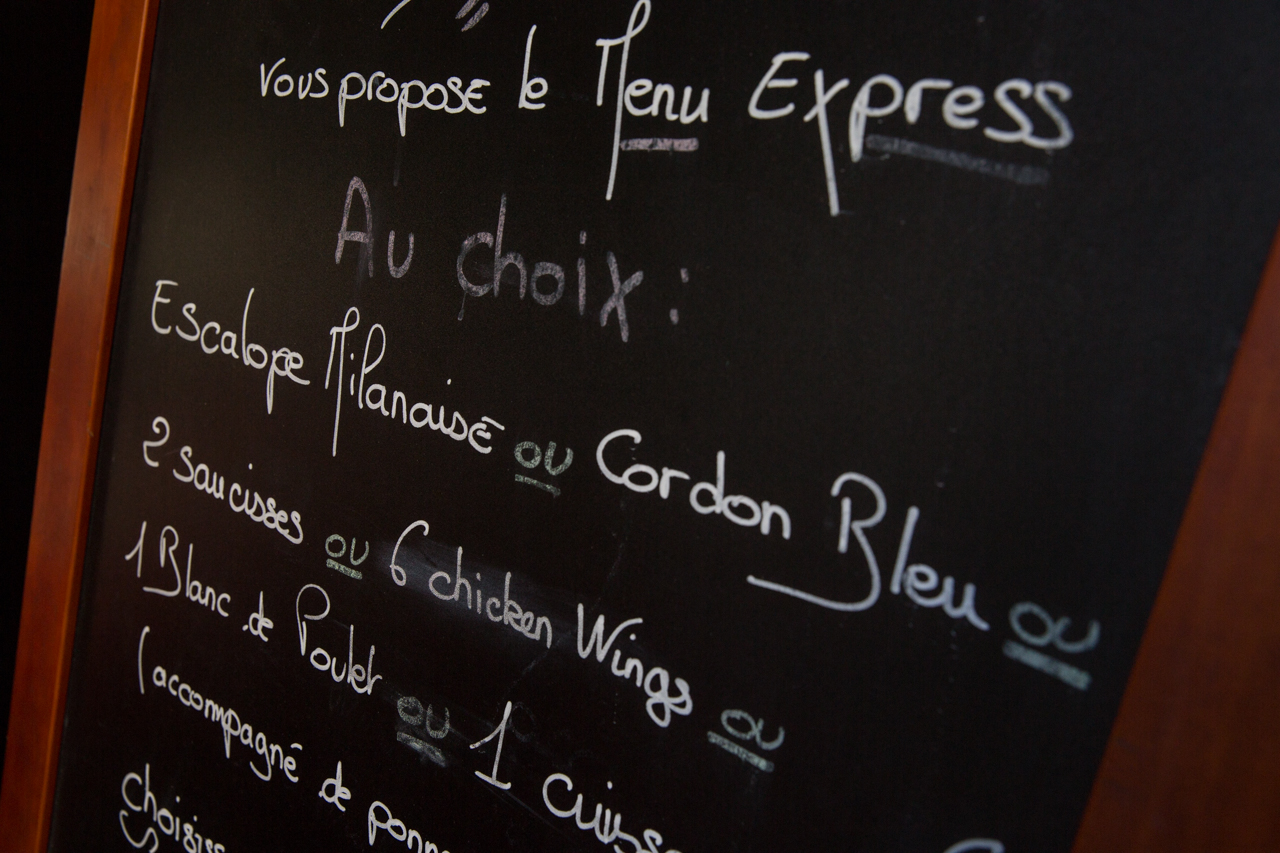 vous propose le Menu Express
Au choix :
Escalope Milanaise ou Cordon Bleu ou
2 saucisses ou 6 chicken Wings ou
1 Blanc de Poulet ou 1 cuisse
(accompagné de pomm
choisiss